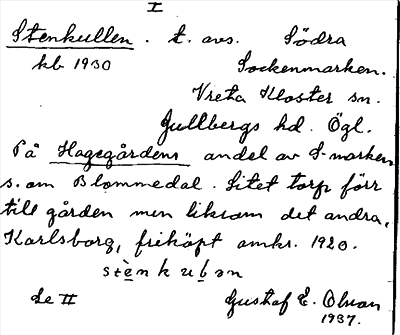 I
Stenkullen. t. avs. Södra
kb 1930 Sockenmarken.
Vreta Kloster sn.
Gullbergs hd. Ögl.
På Hagegårdens andel av S-marken
s. om Blommedal. Litet torp förr
till gården men liksom det andra,
Karlsborg, friköpt omkr. 1920.
stènkubən
Se II Gustaf E. Olsson
1937.